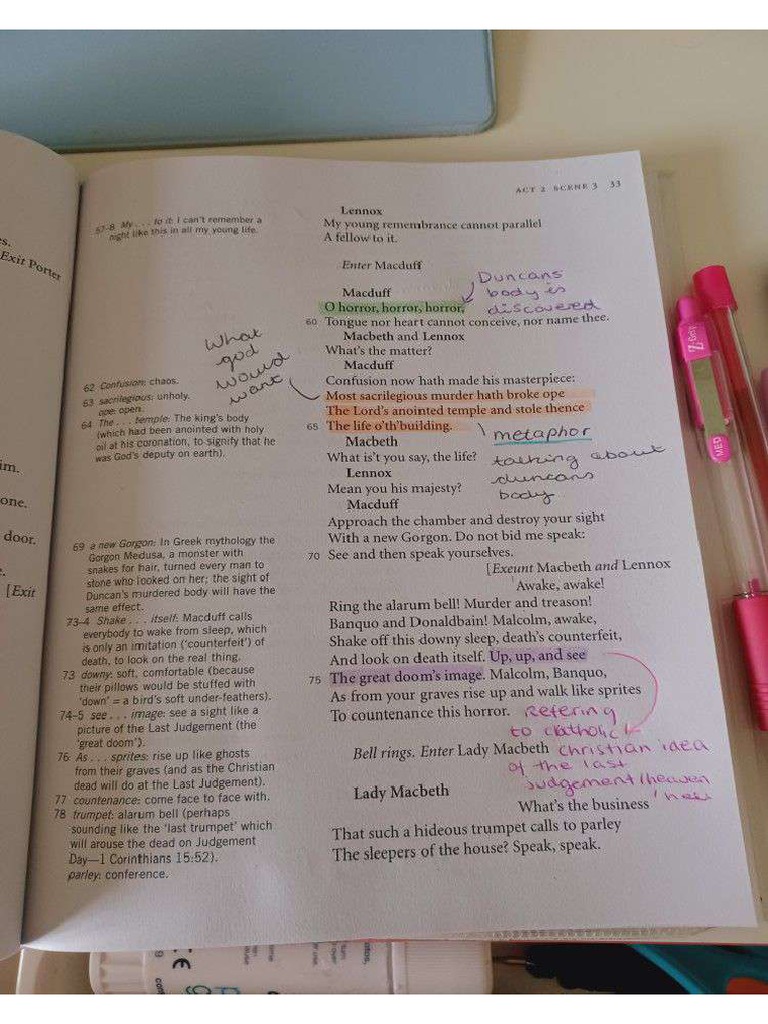 ACT 2 SCENE 3 33
Lennox
My young remembrance cannot parallel
A fellow to it.
Enter Macduff
Macduff
O horror, horror, horror,
60 Tongue nor heart cannot conceive, nor name thee.
Macbeth and Lennox
What's the matter?
Macduff
Confusion now hath made his masterpiece:
Most sacrilegious murder hath broke ope
The Lord's anointed temple and stole thence
65 The life o'th'building.
Macbeth
What is't you say, the life?
Lennox
Mean you his majesty?
Macduff
Approach the chamber and destroy your sight
With a new Gorgon. Do not bid me speak:
70 See and then speak yourselves.
[Exeunt Macbeth and Lennox
Awake, awake!
Ring the alarum bell! Murder and treason!
Banquo and Donaldbain! Malcolm, awake,
Shake off this downy sleep, death's counterfeit,
And look on death itself. Up, up, and see
75 The great doom's image. Malcolm, Banquo,
As from your graves rise up and walk like sprites
To countenance this horror.
Bell rings. Enter Lady Macbeth
Lady Macbeth
What's the business
That such a hideous trumpet calls to parley
The sleepers of the house? Speak, speak.
57-8 My . . . to it: I can't remember a
night like this in all my young life.
62 Confusion: chaos.
63 sacrilegious: unholy.
ope: open.
64 The . . . temple: The king's body
(which had been anointed with holy
oil at his coronation, to signify that he
was God's deputy on earth).
69 a new Gorgon: In Greek mythology the
Gorgon Medusa, a monster with
snakes for hair, turned every man to
stone who looked on her; the sight of
Duncan's murdered body will have the
same effect.
73-4 Shake . . . itself: Macduff calls
everybody to wake from sleep, which
is only an imitation ('counterfeit') of
death, to look on the real thing.
73 downy: soft, comfortable (because
their pillows would be stuffed with
'down' = a bird's soft under-feathers).
74-5 see . . . image: see a sight like a
picture of the Last Judgement (the
'great doom').
76 As . . . sprites: rise up like ghosts
from their graves (and as the Christian
dead will do at the Last Judgement).
77 countenance: come face to face with.
78 trumpet: alarum bell (perhaps
sounding like the 'last trumpet' which
will arouse the dead on Judgement
Day—1 Corinthians 15:52).
parley: conference.
Duncans
body is
discovered
What
god
would
want
metaphor
talking about
duncans
body
Refering
to catholic
christian idea
of the last
judgement/heaven
Exit Porter
im.
one.
door.
[Exit
Z-Grip
MED
CE